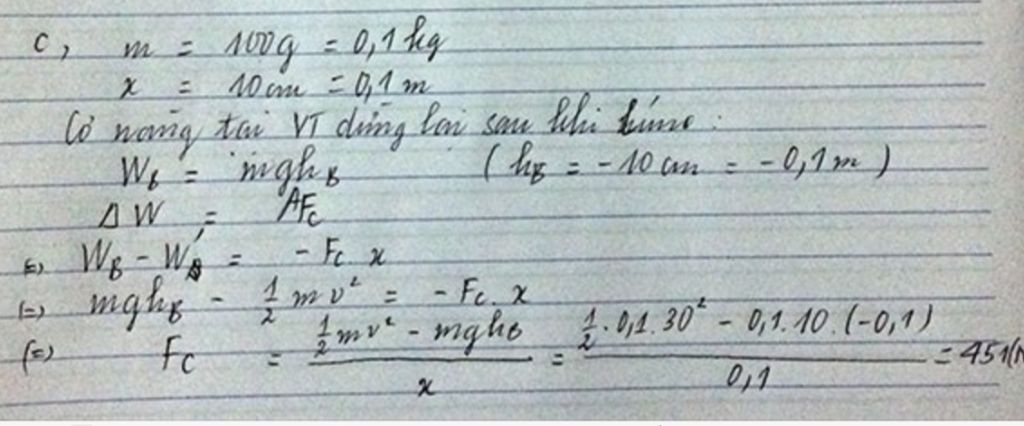 c, m = 100g = 0,1 kg
x = 10 cm = 0,1 m
Cơ năng tại VT dừng lại sau khi lún:
W_B = mgh_B (h_B = -10 cm = -0,1 m)
ΔW = A_Fc
(=) W_B - W_B' = - F_c . x
(=) mgh_B - 1/2 mv² = - F_c . x
(=) F_c = (1/2 mv² - mgh_B) / x = (1/2 . 0,1 . 30² - 0,1 . 10 . (-0,1)) / 0,1 = 451(N